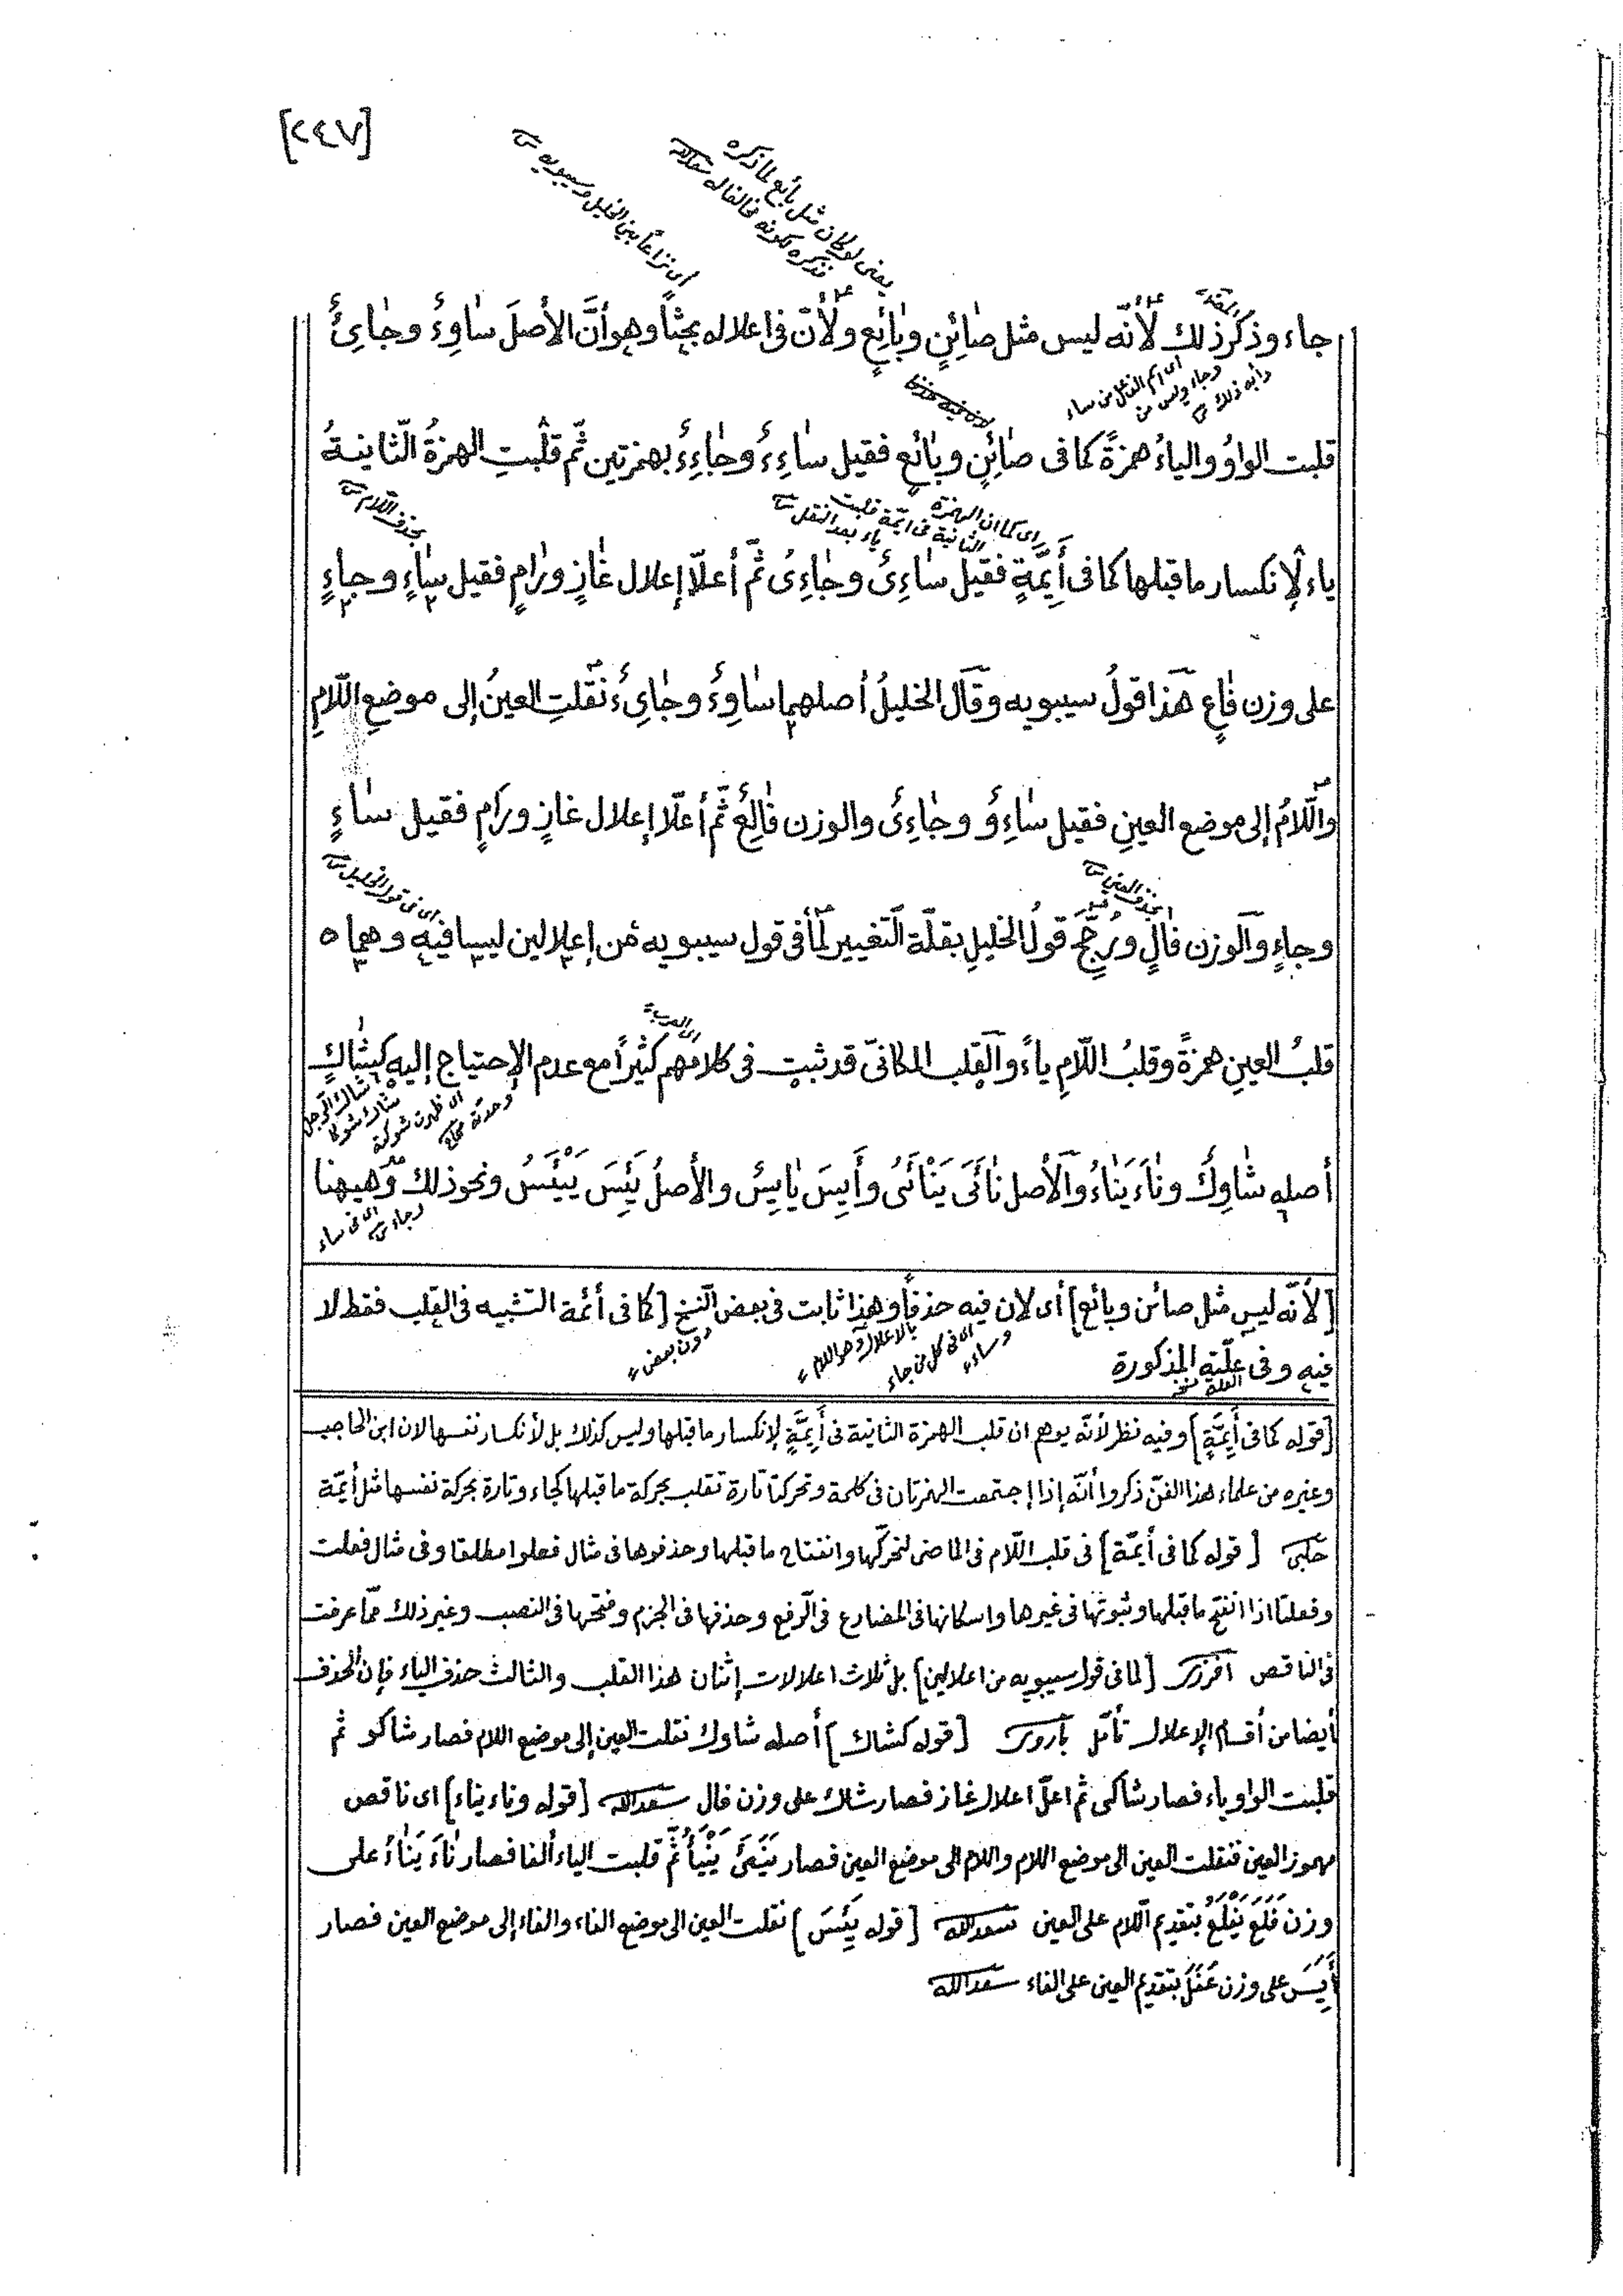 [٢٤٧]
يعنى لو كان مثل بائع لما ذكره
أى نزاعاً بين الخليل وسيبويه
جاء وذكر ذلك لأنّه ليس مثل صٰائِنٍ وبٰائِعٍ ولأنّ فى اعلاله بحثاً وهو أنَّ الأصلَ سٰاوِءٌ وجٰايِئٌ
أى اسم الفاعل من ساء
وجاء وليس من
قلبت الواوُ والياءُ همزةً كما فى صٰائِنٍ وبٰائِعٍ فقيل سٰاءِءٌ وجٰاءِءٌ بهمزتين ثمّ قلبتِ الهمزةُ الثّانيةُ
بحذف اللّام
اى كما ان الهمزة
الثانية فى ائمّة قلبت
ياء بعد النقل
ياء لإنكسار ما قبلها كما فى أَيِمَّةٍ فقيل سٰاءِىٌ وجٰاءِىٌ ثمّ أعلّا إعلال غٰازٍ ورٰامٍ فقيل سٰاءٍ وجٰاءٍ
على وزن فٰاعٍ هذا قولُ سيبويه وقال الخليلُ أصلهما سٰاوِءٌ وجٰايِءٌ نقلتِ العينُ إلى موضعِ اللّامِ
واللّامُ إلى موضع العينِ فقيل سٰاءِوٌ وجٰاءِىٌ والوزن فٰالِعٌ ثمّ أعلّا إعلال غازٍ ورَامٍ فقيل سٰاءٍ
بحذف العين
اى فى قول الخليل
وجاءٍ والوزن فٰالٍ ورُجِّحَ قولُ الخليلِ بقلّة التّغيير لما فى قول سيبويه من إعلالين ليسا فيه وهما
اى العرب
قلبُ العينِ همزةً وقلبُ اللّامِ ياءً والقلب المكانىّ قد ثبت فى كلامهم كثيراً مع عدم الإحتياج إليه كشٰاكٍ
شاك الرّجل
اى ظهرت شوكة
أصله شٰاوِكٌ ونٰاءَ يَنٰاءُ والأصل نٰأَىَ يَنْأَىُ وأَيِسَ يٰايِسُ والأصلُ يَئِسَ يَيْئَسُ ونحو ذلك وههنا
اى فى ساء
وجاء
[لأنّه ليس مثل صائن وبائع] أى لان فيه حذفاً وهذا ثابت فى بعض النّسخ [كما فى أئمة التشبيه فى القلب فقط لا
دون بعض
بالاعلال وهو اللام
اى فى كل من جاء
وساء
فيه وفى علّته المذكورة
العلة نسخه
[قوله كما فى أَيِمَّةٍ] وفيه نظر لأنّه يوهم ان قلب الهمزة الثانية فى أَيِمَّةٍ لإنكسار ما قبلها وليس كذلك بل لأنكسار نفسها لان ابن الحاجب
وغيره من علماء هذا الفنّ ذكروا أنّه إذا إجتمعت الهمزتان فى كلمة وتحركتا تارة تقلب بحركة ما قبلها كجاء وتارة بحركة نفسها مثل أيمّة
حلبى [قوله كما فى أيمّة] فى قلب اللّام فى الماضى لتحرّكها وانفتاح ما قبلها وحذفوها فى مثال فعلوا مطلقا وفى مثال فعلت
وفعلتا اذا انفتح ما قبلها وثبوتها فى غيرها واسكانها فى المضارع فى الرّفع وحذفها فى الجزم وفتحها فى النصب وغير ذلك ممّا عرفت
فى الناقص [لما فى قول سيبويه من اعلالين] بل ثلاث اعلالات إثنان هذا القلب والثالث حذف الياء فإن الحذف
أيضا من أقسام الإعلال تأمّل [قوله كشاك] أصله شاوك نقلت العين إلى موضع اللام فصار شاكو ثم
قلبت الواو ياء فصار شاكى ثم اعلّ اعلال غاز فصار شاك على وزن فال سعدالله [قوله وناء يناء] اى ناقص
مهموز العين فنقلت العين الى موضع اللام واللام الى موضع العين فصار نَيَئَ يَنْيَأُ ثمّ قلبت الياء ألفا فصار نٰاءَ يَنٰاءُ على
وزن فَلَعَ يَفْلَعُ بتقديم اللّام على العين سعدالله [قوله يَئِسَ] نقلت العين الى موضع الفاء والفاء إلى موضع العين فصار
أَيِسَ على وزن عَفِلَ بتقديم العين على الفاء سعدالله